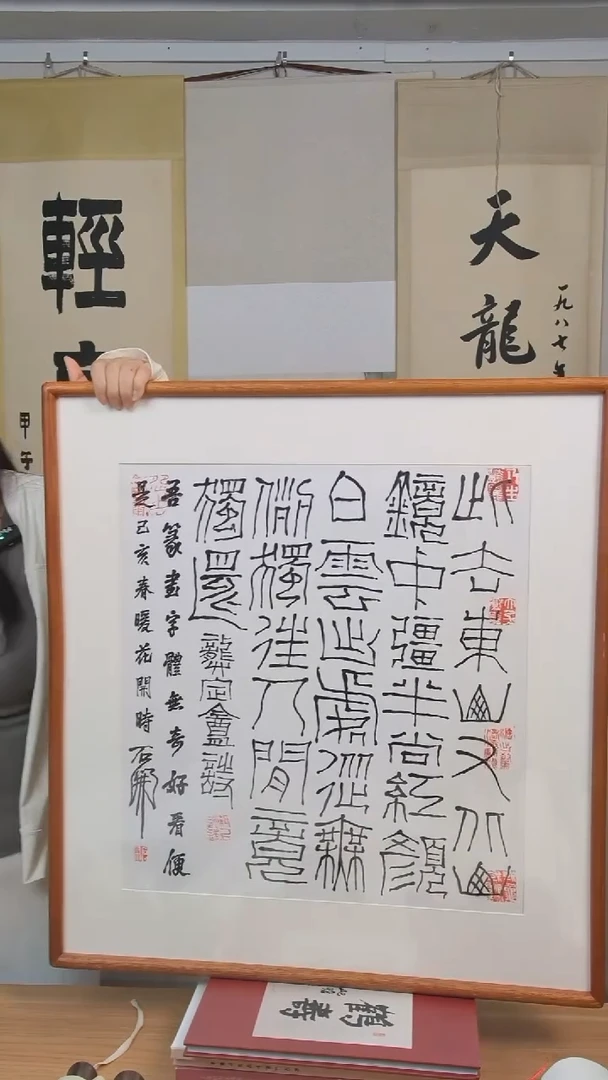 天龍
一九八七年
輕
甲午
此去東山又北山
鏡中彊半尚紅顏
白雲出處從無
例獨往人間竟
獨還
龔定盦詩
吾篆書字體無奇好看便
是己亥春暖花開時石開
鶴壽